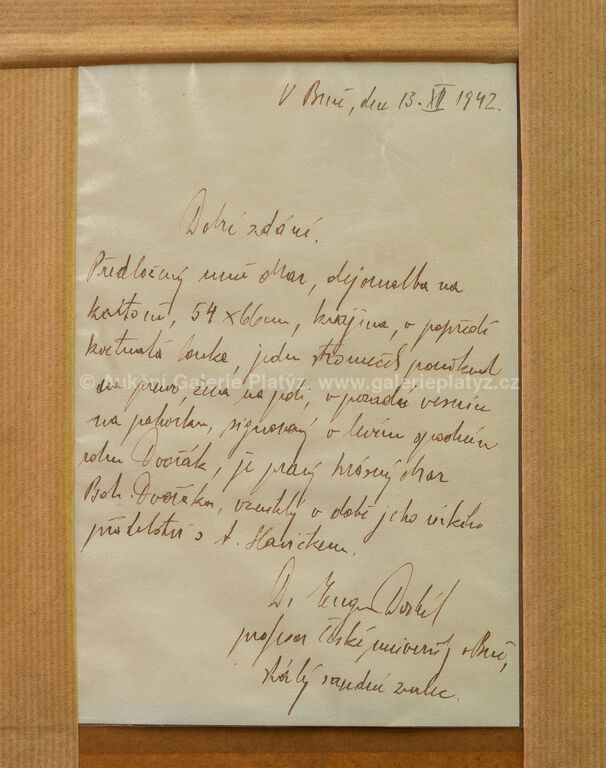 V Brně, dne 13. XII 1942.
Dobré zdání.
Předložený mně obraz, olejomalba na
kartoně, 54 x 66 cm, krajina, v popředí
květnatá louka, jeden stromeček
na pravo, žena na poli, v pozadí vesnice
© Aukční Galerie Platýz, www.galerieplatyz.cz
na pahorku, signovaný v levém spodním
rohu Dvořák, je pravý krásný obraz
Boh. Dvořáka, vzniklý v době jeho úzkého
přátelství s A. Slavíčkem.
Dr Eugen Dostál
profesor České university v Brně,
stálý soudní znalec.